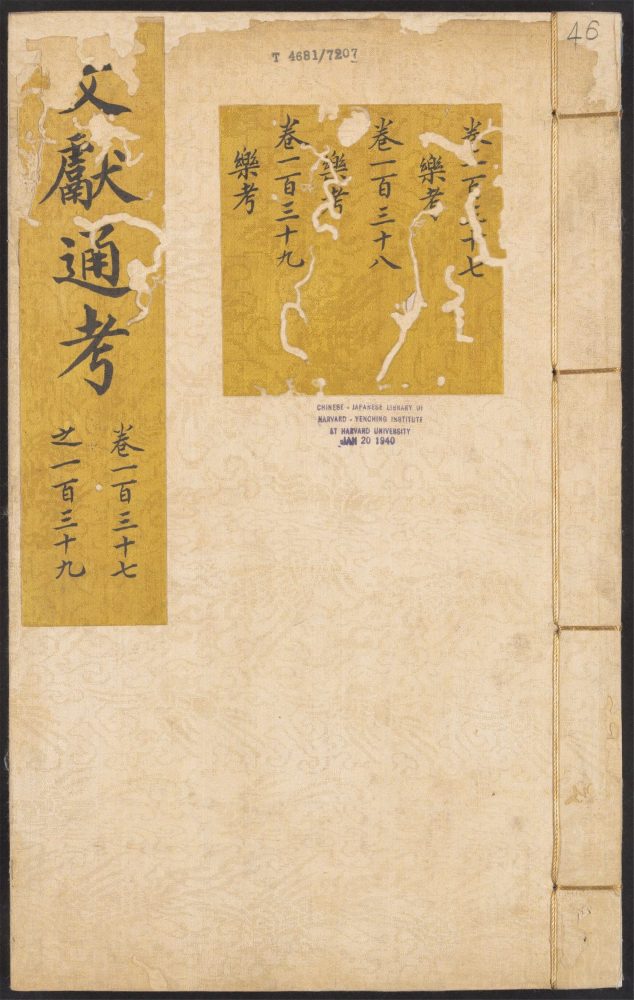 46
T 4681/7207
文獻通考
卷一百三十七
之一百三十九
卷一百三十七
樂考
卷一百三十八
樂考
卷一百三十九
樂考
CHINESE - JAPANESE LIBRARY OF
HARVARD - YENCHING INSTITUTE
AT HARVARD UNIVERSITY
JAN 20 1940